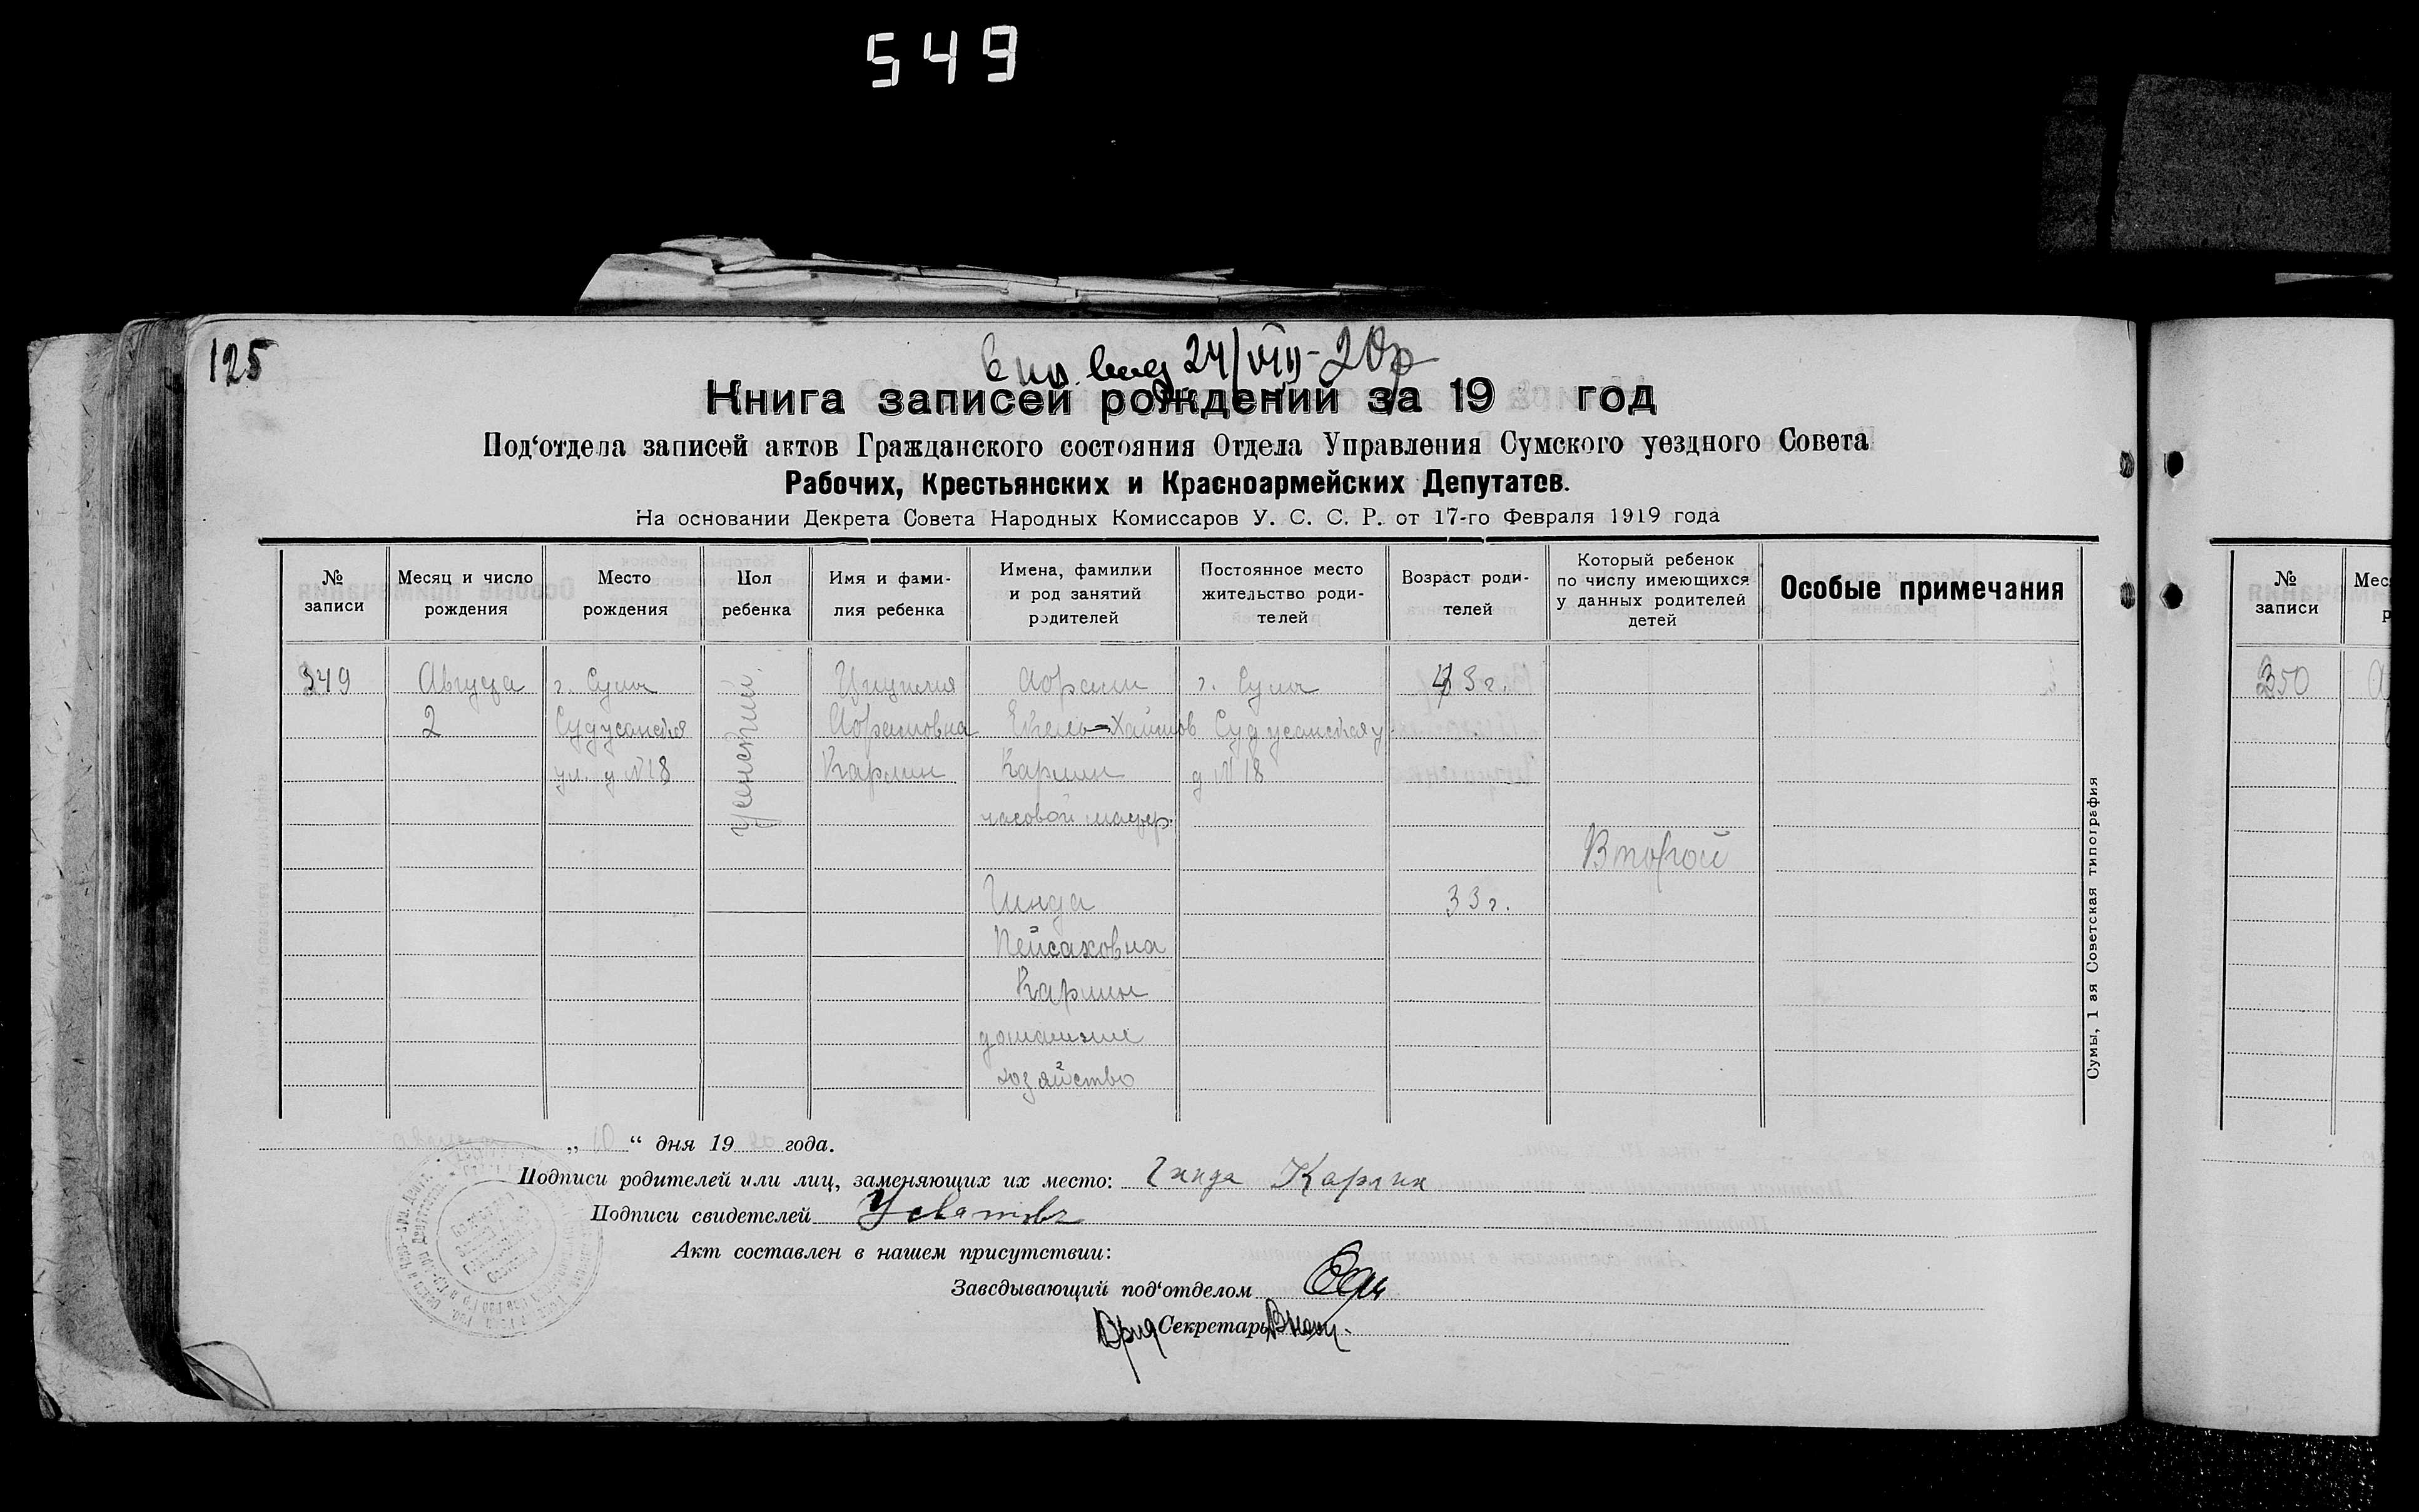 549
125
24/VIII-20
Книга записей рождений за 19 год
Под‘отдела записей актов Гражданского состояния Отдела Управления Сумского уездного Совета
Рабочих, Крестьянских и Красноармейских Депутатов.
На основании Декрета Совета Народных Комиссаров У. С. С. Р. от 17-го Февраля 1919 года
№ записи
Месяц и число рождения
Место рождения
Пол ребенка
Имя и фами-
лия ребенка
Имена, фамилии
и род занятий
родителей
Постоянное место
жительство роди-
телей
Возраст роди-
телей
Который ребенок
по числу имеющихся
у данных родителей
детей
Особые примечания
349
Августа
2
г. Сумы
ул. д №18
женский
Абрамовна
Карлин
Абрам
Карлин
часовой мастер.
Гинда
Пейсаховна
Карлин
домашнее
хозяйство
г. Сумы
д №18
43 г.
33 г.
Второй
Сумы, 1 ая Советская типография
„ 10 “ дня 19 20 года.
Подписи родителей или лиц, заменяющих их место: Гинда Карлин
Подписи свидетелей
Акт составлен в нашем присутствии:
Заведывающий под‘отделом
Секретарь
№
записи
Мес
р
350